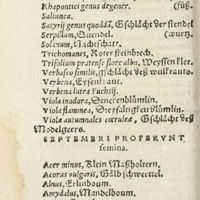 Rhapontici genus degener. (fuß.
Saliunca.
Satyrij genus quoddā, Gschlächt der stendel
Serpillum, Quendel. (wurtz.
Solanum, Nachtschatt.
Trichomanes, Roter steinbrech.
Trifolium pratense flore albo, Weyssen klee.
Verbasco similis, gschlächt deß wullkrauts.
Verbena, Eysenkraut.
Verbena lutea Fuchsij.
Viola inodora, Denctenblümlin.
Viola flammea, Dreyfaltigkeit blümlin.
Viola autumnales cœrulea, Gschlächt deß
Modelgeers.
SEPTEMBRI PROFERVNT
semina.
Acer minus, Klein Maßholtern.
Acorus vulgaris, Gälb schwertel.
Alnus, Erlinboum.
Amydalus, Mandelboum.